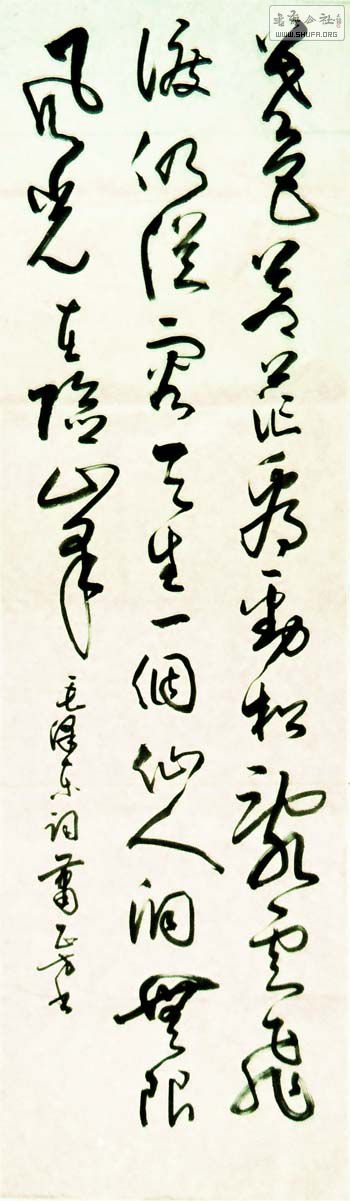 書法公社
WWW.SHUFA.ORG
暮色蒼茫看勁松亂雲飛
渡仍從容天生一個仙人洞無限
風光在險峯
毛澤東詞 蕭正方书